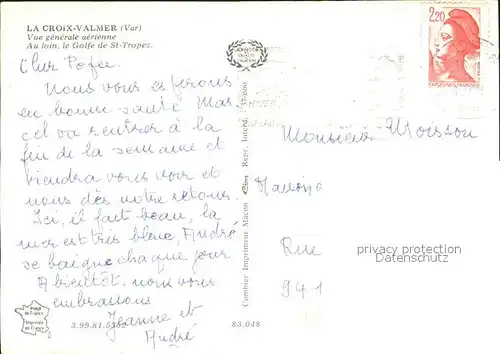 LA CROIX-VALMER (Var)
Vue générale aérienne
Au loin, le Golfe de St-Tropez.
Cher Pépée
Nous vous espérons
en bonne santé Mar
cel va rentrer à la
fin de la semaine et
viendra vous voir et
nous dès notre retour.
Ici, il fait beau, la
mer est très bleue, André
se baigne chaque jour
A bientôt, nous vous
embrassons
Jeanne et
André
Image
de France
Imprimée
en France
3.99.81.5382
83.048
Combier Imprimeur Mâcon Cim Repr. Interd.
2,20
Monsieur Moisson
Rue
941
privacy protection
Datenschutz